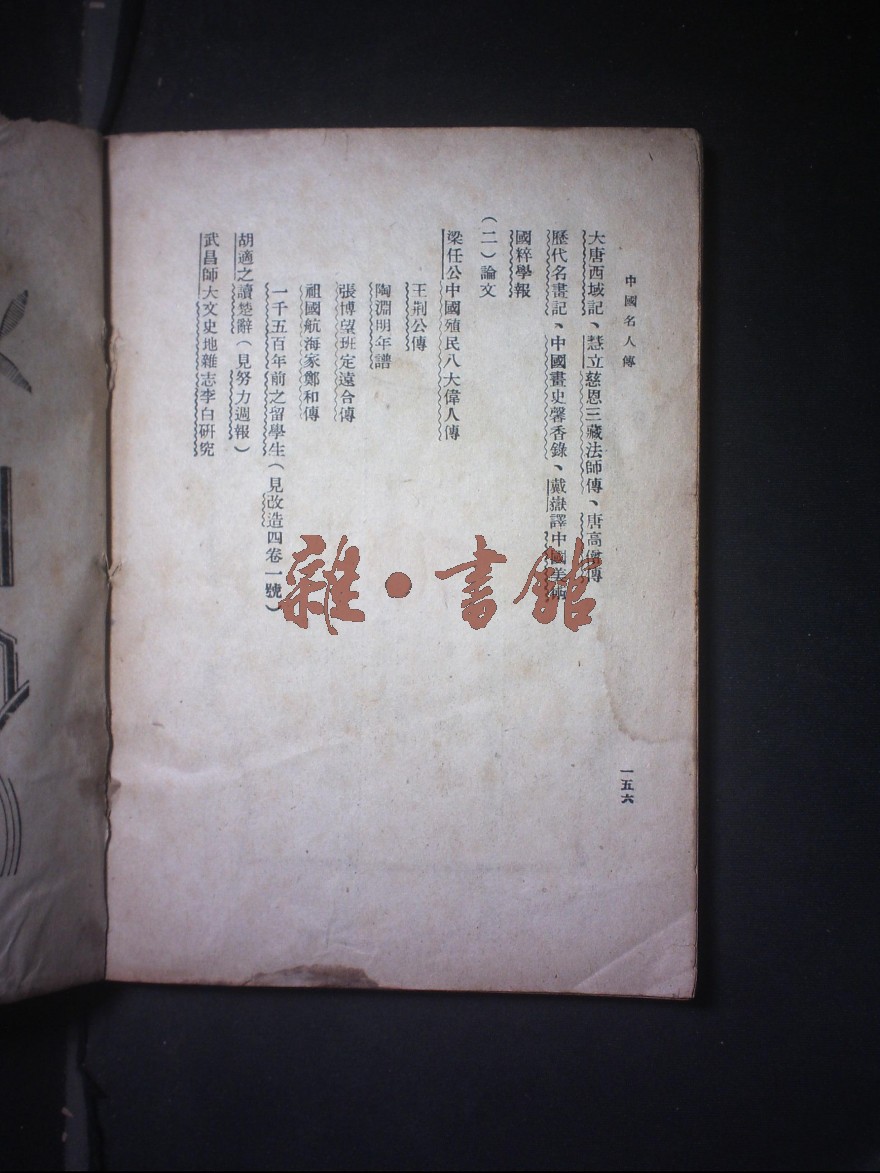 中國名人傳
大唐西域記、慧立慈恩三藏法師傳、唐高僧傳
歷代名畫記、中國畫史馨香錄、戴嶽譯中國美術
國粹學報
(二)論文
梁任公中國殖民八大偉人傳
王荆公傳
陶淵明年譜
張博望班定遠合傳
祖國航海家鄭和傳
一千五百年前之留學生(見改造四卷一號)
胡適之讀楚辭(見努力週報)
武昌師大文史地雜志李白研究
一五六
雜·書館